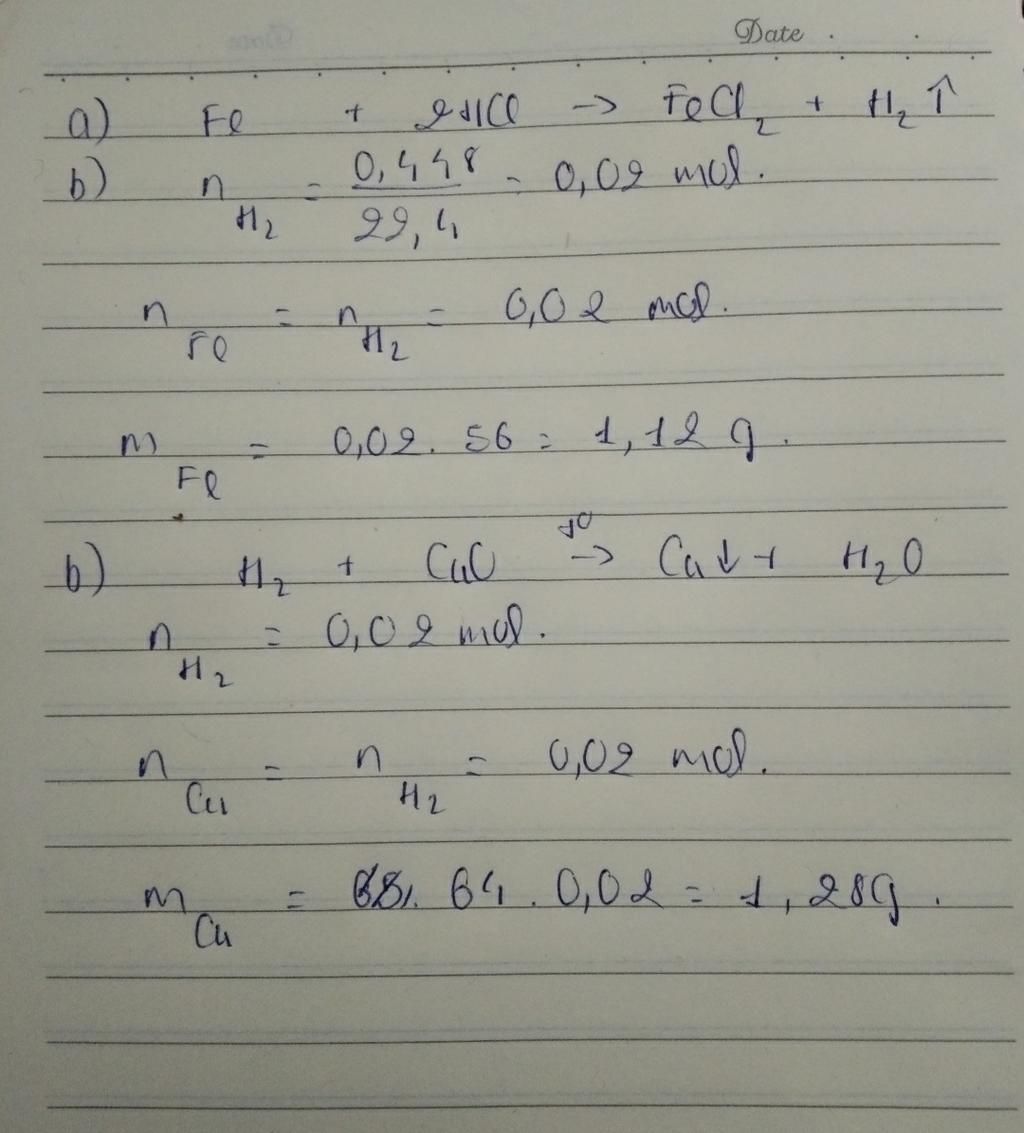 Date
a) Fe + 2HCl → FeCl₂ + H₂ ↑
b) n H₂ = 0,448 / 22,4 = 0,02 mol.
n Fe = n H₂ = 0,02 mol.
m Fe = 0,02 . 56 = 1,12 g.
b) H₂ + CuO t° → Cu ↓ + H₂O
n H₂ = 0,02 mol.
n Cu = n H₂ = 0,02 mol.
m Cu = 64 . 0,02 = 1,28g.